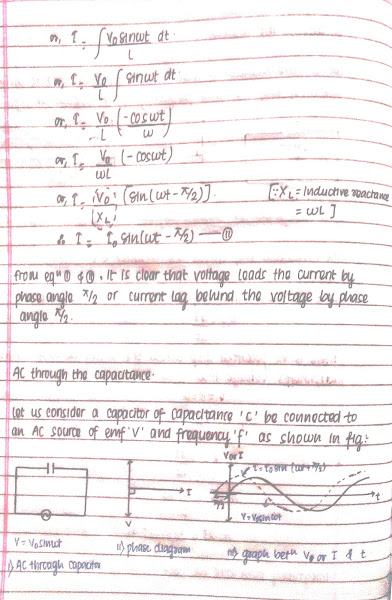 or, I = ∫ V₀ sinωt dt / L
or, I = V₀/L ∫ sinωt dt
or, I = V₀/L (-cosωt / ω)
or, I = V₀/ωL (-cosωt)
or, I = (V₀/X_L) [sin(ωt - π/2)] [∵ X_L = Inductive reactance
= ωL]
∴ I = I₀ sin(ωt - π/2) — (II)
from eqⁿ (I) & (II), it is clear that voltage leads the current by
phase angle π/2 or current lag behind the voltage by phase
angle π/2.
AC through the capacitance.
Let us consider a capacitor of capacitance 'C' be connected to
an AC source of emf 'V' and frequency 'f' as shown in fig:-
V or I
I = I₀ sin (ωt + π/2)
I
t
V
V = V₀ sinωt
V = V₀ sinωt
i) AC through capacitor
ii) phase diagram
iii) graph betⁿ V or I & t